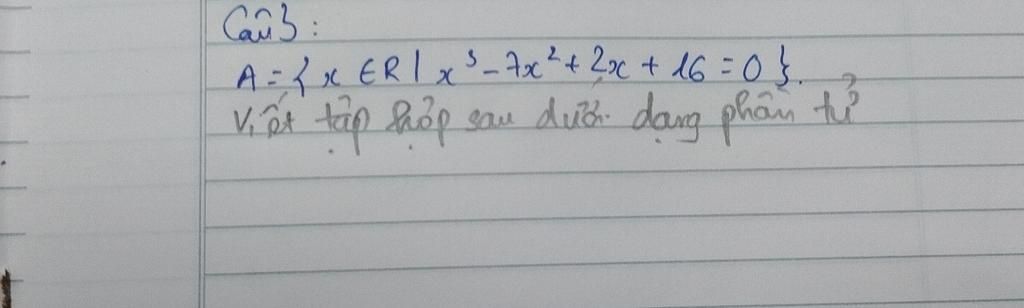 Câu 3 :
A = { x ∈ R | x³ - 7x² + 2x + 16 = 0 }.
Viết tập hợp sau dưới dạng phần tử